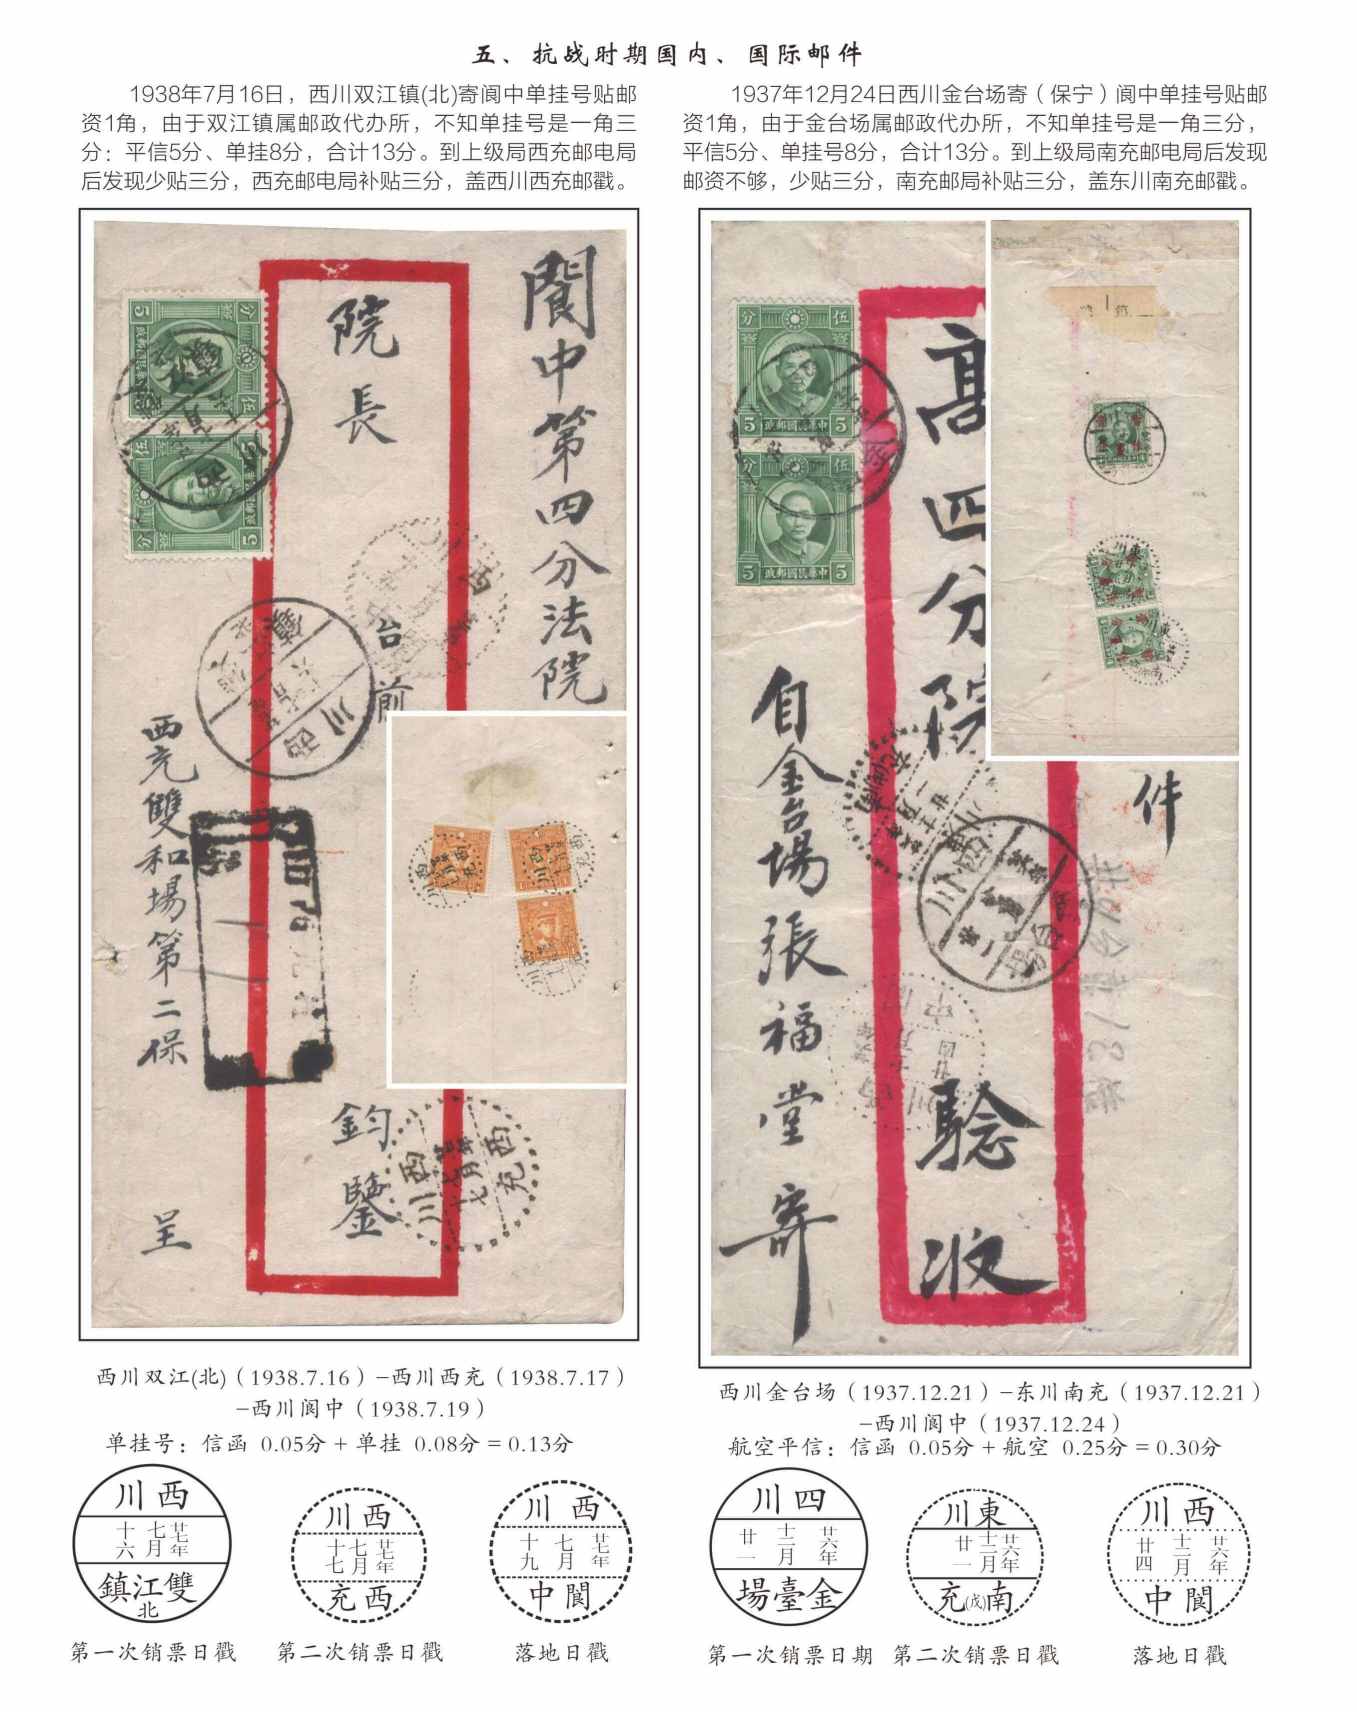 五、抗战时期国内、国际邮件
1938年7月16日，西川双江镇(北)寄阆中单挂号贴邮
资1角，由于双江镇属邮政代办所，不知单挂号是一角三
分：平信5分、单挂8分，合计13分。到上级局西充邮电局
后发现少贴三分，西充邮电局补贴三分，盖西川西充邮戳。
1937年12月24日西川金台场寄（保宁）阆中单挂号贴邮
资1角，由于金台场属邮政代办所，不知单挂号是一角三分，
平信5分、单挂号8分，合计13分。到上级局南充邮电局后发现
邮资不够，少贴三分，南充邮局补贴三分，盖东川南充邮戳。
閬中第四分法院
院長
台前
鈞鑒
西充雙和場第二保
呈
伍分
5
中華民國郵政
西川
西充
高四分院
驗收
件
自金台場張福堂寄
伍分
5
中華民國郵政
西川双江(北)（1938.7.16）–西川西充（1938.7.17）
–西川阆中（1938.7.19）
单挂号：信函 0.05分 + 单挂 0.08分 = 0.13分
西川金台场（1937.12.21）–东川南充（1937.12.21）
–西川阆中（1937.12.24）
航空平信：信函 0.05分 + 航空 0.25分 = 0.30分
西川
廿七年
七月
十六
雙江鎮
北
第一次销票日戳
西川
廿七年
七月
十七
西充
第二次销票日戳
西川
廿七年
七月
十九
閬中
落地日戳
四川
廿六年
十二月
廿一
金臺場
第一次销票日期
東川
廿六年
十二月
廿一
南(戊)充
第二次销票日戳
西川
廿六年
十二月
廿四
閬中
落地日戳